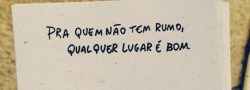 PRA QUEM NÃO TEM RUMO,
QUALQUER LUGAR É BOM.